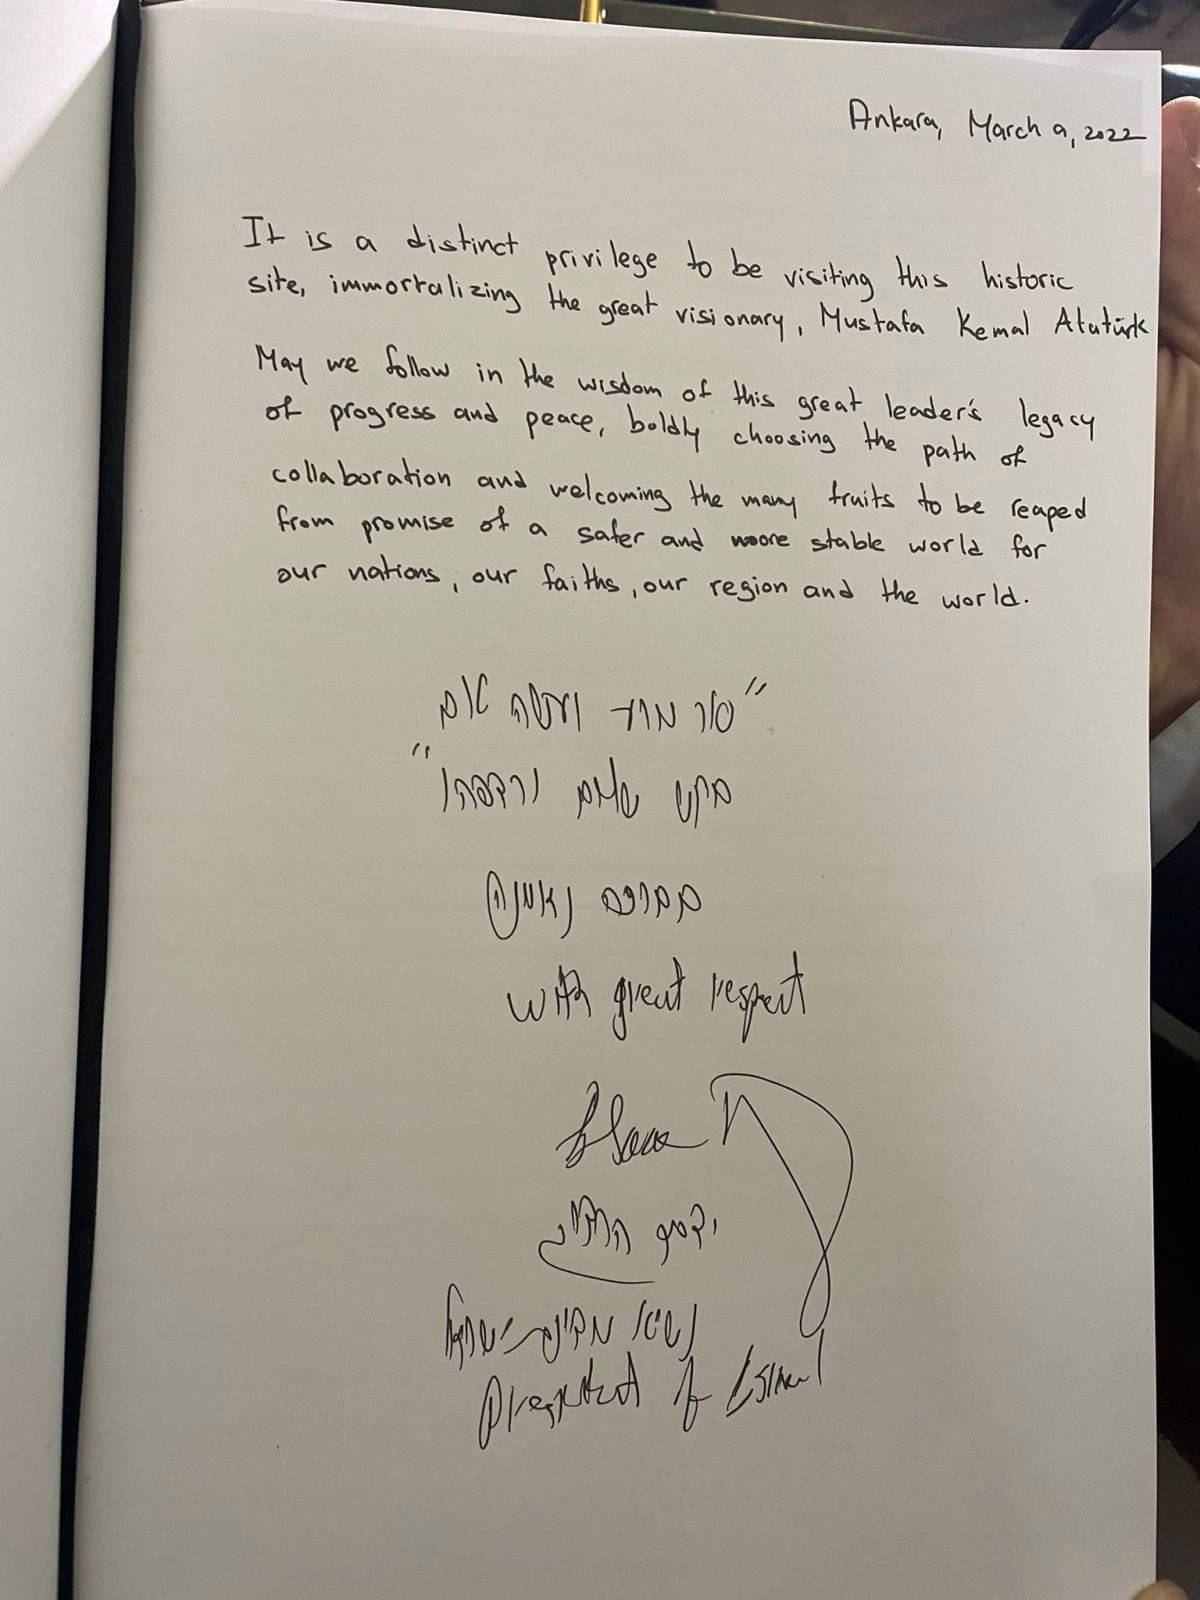 Ankara, March 9, 2022
It is a distinct privilege to be visiting this historic
site, immortalizing the great visionary, Mustafa Kemal Atatürk
May we follow in the wisdom of this great leader's legacy
of progress and peace, boldly choosing the path of
collaboration and welcoming the many fruits to be reaped
from promise of a safer and more stable world for
our nations, our faiths, our region and the world.
"סור מרע ועשה טוב
בקש שלום ורדפהו"
בברכה נאמנה
with great respect
יצחק הרצוג
נשיא מדינת ישראל
President of Israel